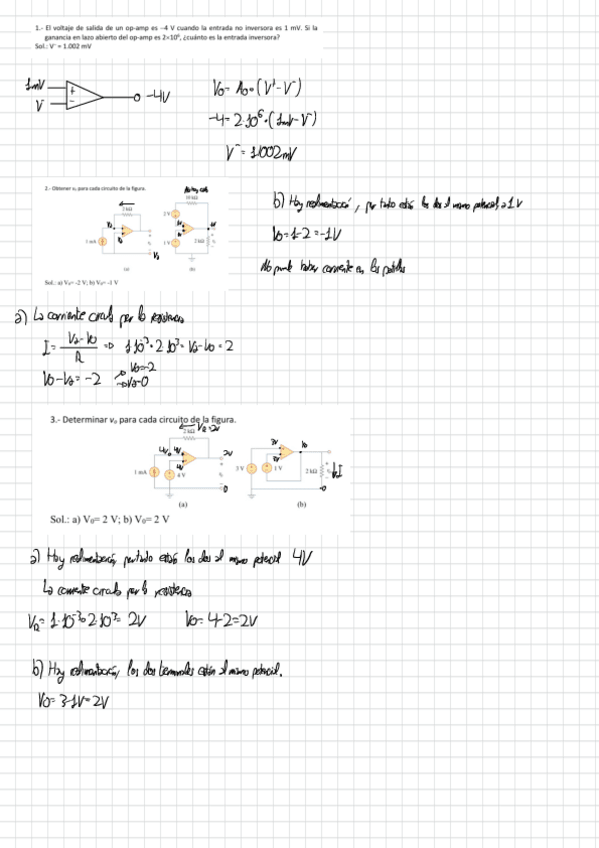 1.- El voltaje de salida de un op-amp es −4 V cuando la entrada no inversora es 1 mV. Si la
ganancia en lazo abierto del op-amp es 2×10⁶, ¿cuánto es la entrada inversora?
Sol.: V⁻ = 1.002 mV
1mV
V⁻
+
-
-4V
V₀ = A₀·(V⁺-V⁻)
-4 = 2·10⁶·(1mV-V⁻)
V⁻ = 1.002mV
2.- Obtener v₀ para cada circuito de la figura.
2 kΩ
1 mA
(a)
10 kΩ
2 V
1 V
2 kΩ
(b)
Sol.: a) V₀= -2 V; b) V₀= -1 V
b) Hay realimentación, por tanto están los dos al mismo potencial, a 1V
V₀ = 1-2 = -1V
No puede haber corriente en las patillas
a) La corriente circula por la resistencia
I = Va-V₀ / R => 1·10⁻³·2·10³ = Va-V₀ = 2
V₀-Va = -2
V₀=-2
Va=0
3.- Determinar v₀ para cada circuito de la figura.
VR=2V
2 kΩ
4V
4V
4V
2V
1 mA
4 V
0
(a)
3V
3V
V₀
3 V
1 V
2 kΩ
0
(b)
Sol.: a) V₀= 2 V; b) V₀= 2 V
a) Hay realimentación, por tanto están los dos al mismo potencial 4V
La corriente circula por la resistencia
VR = 1·10⁻³·2·10³ = 2V
V₀ = 4-2 = 2V
b) Hay realimentación, los dos terminales están al mismo potencial.
V₀ = 3-1V = 2V